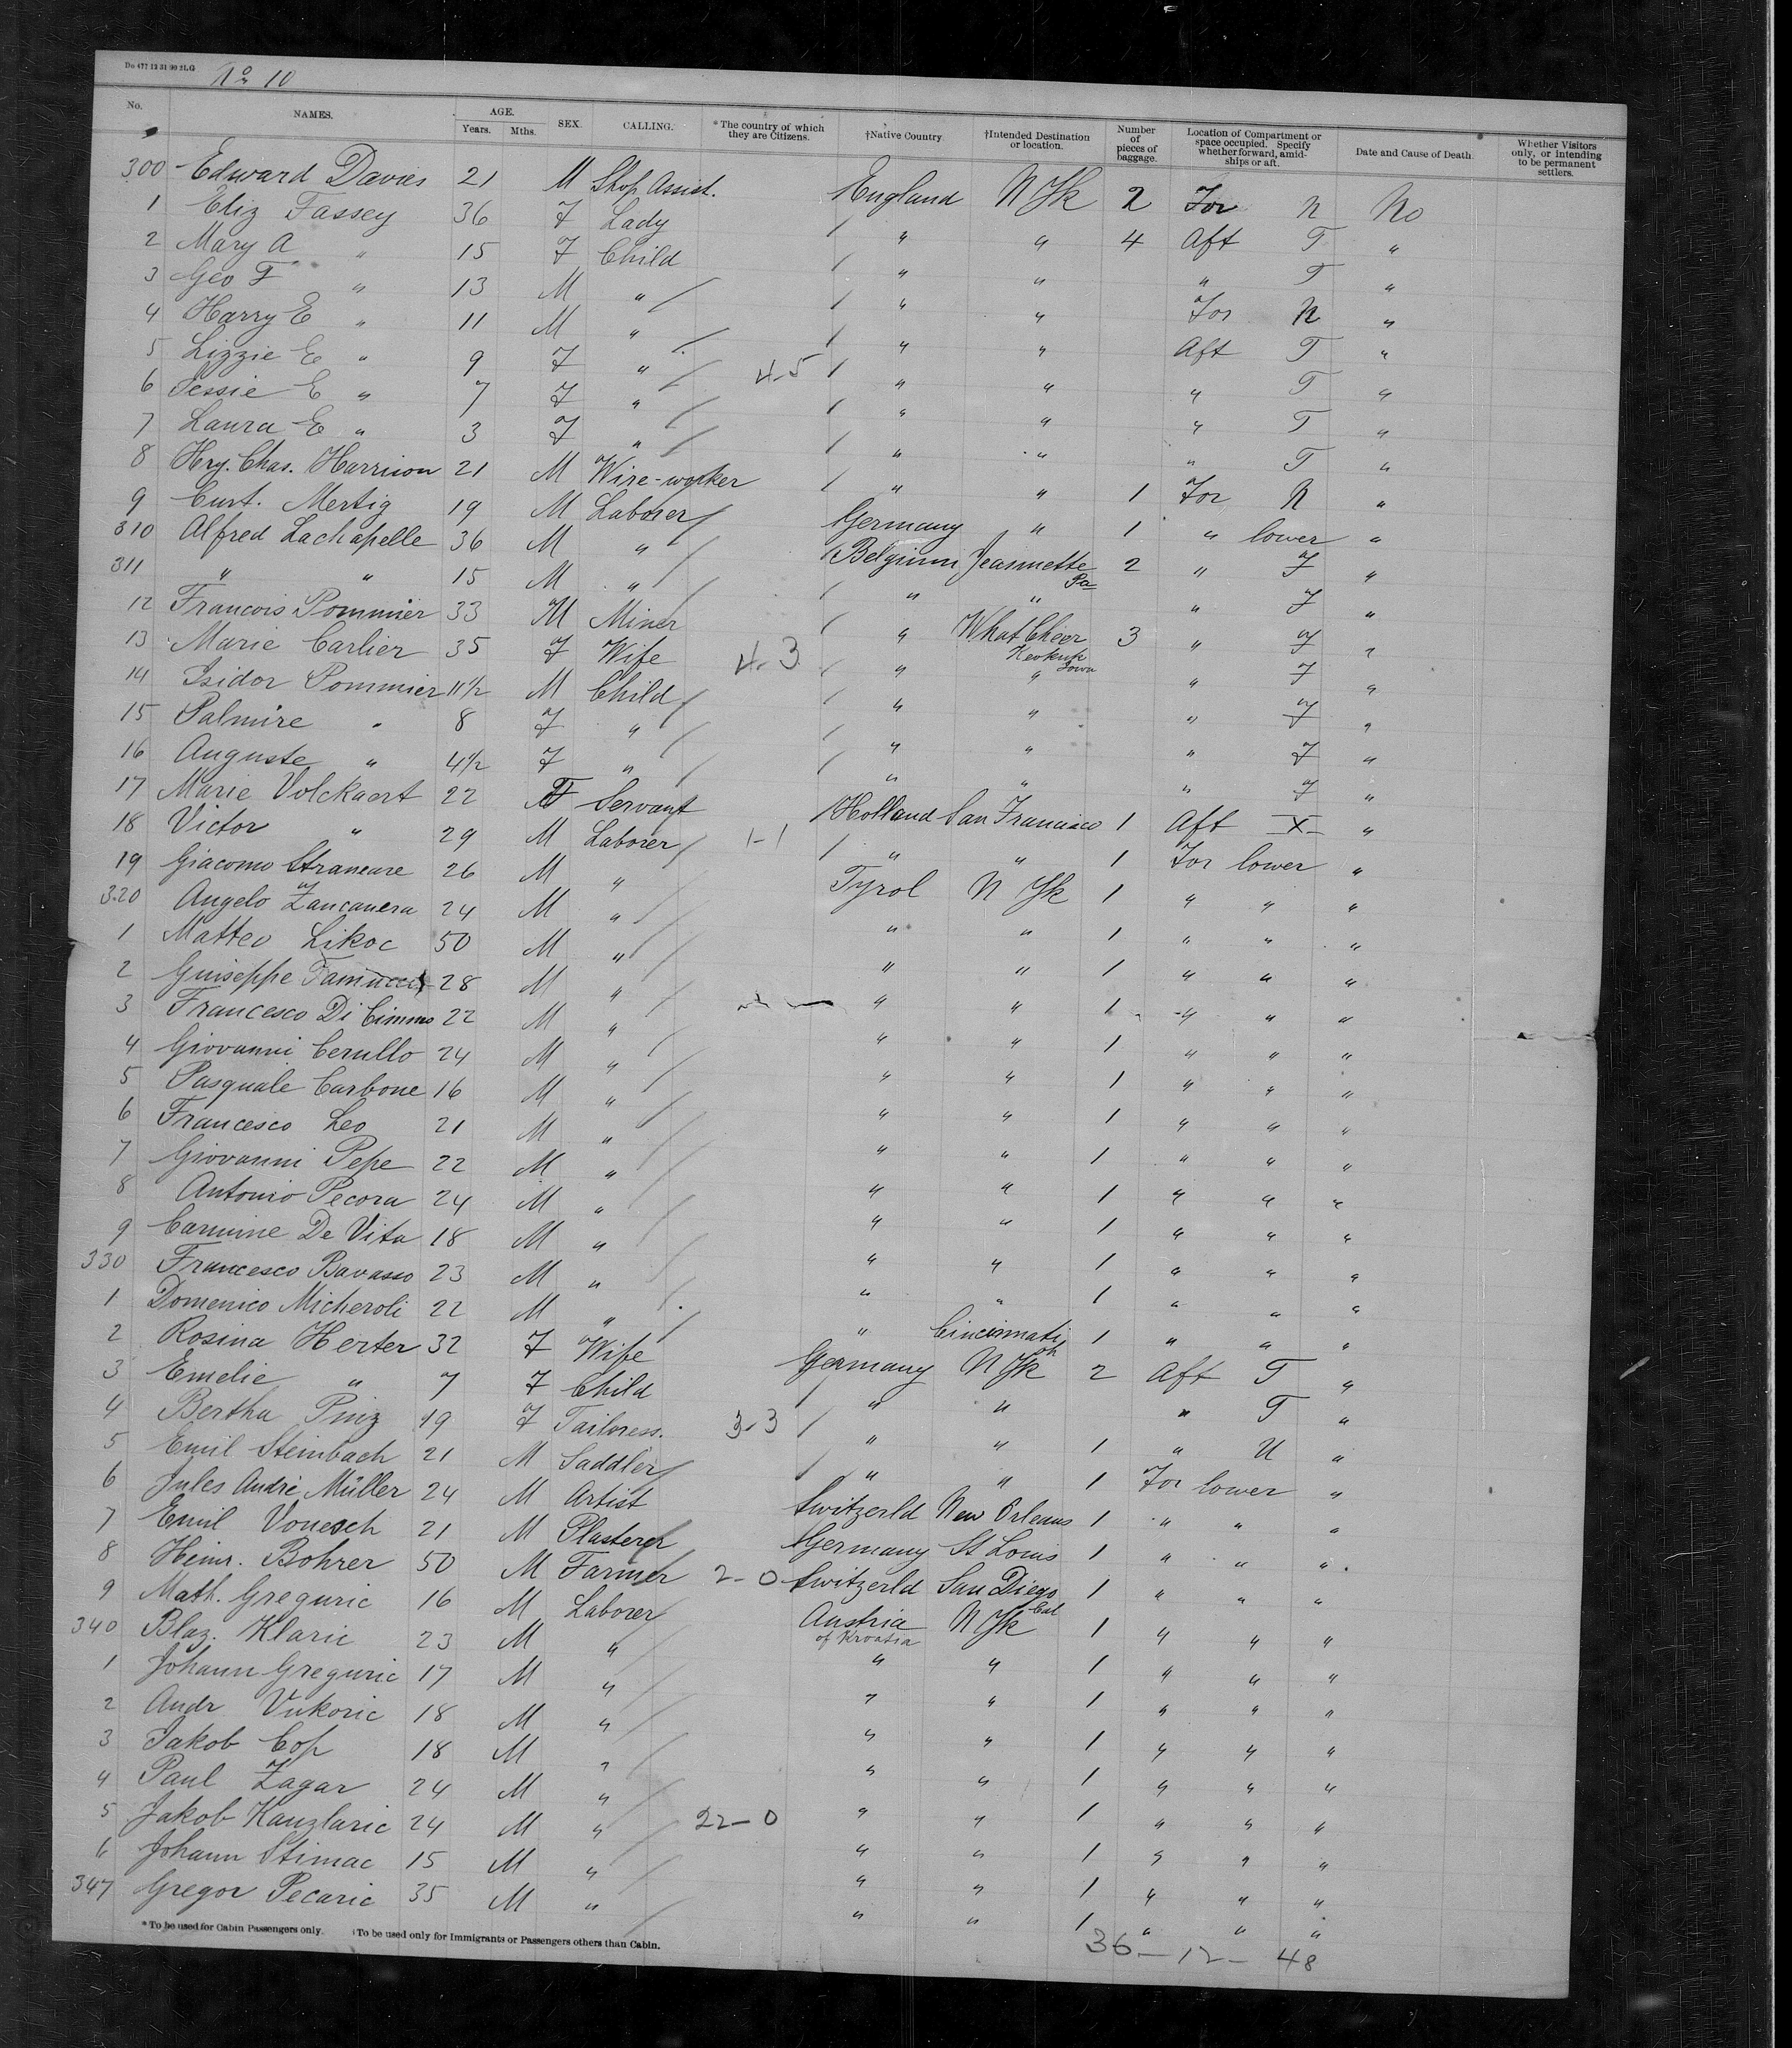 Do 477 12 31 90 2LG No 10
No. NAMES. AGE. Years. Mths. SEX. CALLING. *The country of which they are Citizens. †Native Country †Intended Destination or location. Number of pieces of baggage. Location of Compartment or space occupied. Specify whether forward, amidships or aft. Date and Cause of Death. Whether Visitors only, or intending to be permanent settlers.
300 Edward Davies 21 M Shop Assist. England N Yk 2 For N No
1 Eliz Fassey 36 F Lady / " " 4 Aft T "
2 Mary A " 15 F Child / " " " T "
3 Geo F " 13 M " / / " " For N "
4 Harry E " 11 M " / / " " Aft T "
5 Lizzie E " 9 F " / 4-5 / " " " T "
6 Jessie E " 7 F " / / " " " T "
7 Laura E " 3 F " / / " " " T "
8 Hry. Chas. Harrison 21 M Wire-worker / " " 1 For N "
9 Curt. Mertig 19 M Laborer / Germany " 1 " lower "
310 Alfred Lachapelle 36 M " / Belgium Jeannette Pa 2 " F "
311 " " 15 M " / / " " " F "
12 Francois Pommier 33 M Miner / " What Cheer Keokuk Iowa 3 " F "
13 Marie Carlier 35 F Wife 4-3 / " " " F "
14 Isidor Pommier 11½ M Child / / " " " F "
15 Palmire " 8 F " / / " " " F "
16 Auguste " 4½ F " / / " " " F "
17 Marie Volckaert 22 F Servant / Holland San Francisco 1 Aft X "
18 Victor " 29 M Laborer / 1-1 / " " 1 For lower "
19 Giacomo Straneare 26 M " / Tyrol N Yk 1 " " "
320 Angelo Zancanera 24 M " / " " 1 " " "
1 Matteo Likoc 50 M " / " " 1 " " "
2 Guiseppe 28 M " / " " 1 " " "
3 Francesco Di Cimmo 22 M " / " " 1 " " "
4 Giovanni Cerullo 24 M " / " " 1 " " "
5 Pasquale Carbone 16 M " / " " 1 " " "
6 Francesco Leo 21 M " / " " 1 " " "
7 Giovanni Pepe 22 M " / " " 1 " " "
8 Antonio Pecora 24 M " / " " 1 " " "
9 Carmine De Vita 18 M " / " " 1 " " "
330 Francesco Bavasso 23 M " / " " 1 " " "
1 Domenico Micheroli 22 M " / " Cincinnati Oh 1 " " "
2 Rosina Herter 32 F Wife Germany N Yk 2 Aft T "
3 Emelie " 7 F Child / " " " T "
4 Bertha Pinz 19 F Tailoress. 3-3 / " " 1 " U "
5 Emil Steinbach 21 M Saddler / / " " 1 For lower "
6 Jules André Müller 24 M Artist Switzerld New Orleans 1 " " "
7 Emil Vonesch 21 M Plasterer / Germany St Louis 1 " " "
8 Heinr. Bohrer 50 M Farmer 2-0 Switzerld San Diego Cal 1 " " "
9 Math. Greguric 16 M Laborer / Austria of Kroatia N Yk 1 " " "
340 Blaz. Klaric 23 M " / " " 1 " " "
1 Johann Greguric 17 M " / " " 1 " " "
2 Andr Vukoric 18 M " / " " 1 " " "
3 Jakob Cop 18 M " / " " 1 " " "
4 Paul Zagar 24 M " / " " 1 " " "
5 Jakob Kanzlaric 24 M " / 22-0 " " 1 " " "
6 Johann Stimac 15 M " / " " 1 " " "
347 Gregor Pecaric 35 M " / " " 1 " " "
*To be used for Cabin Passengers only. †To be used only for Immigrants or Passengers others than Cabin.
36 - 12 - 48